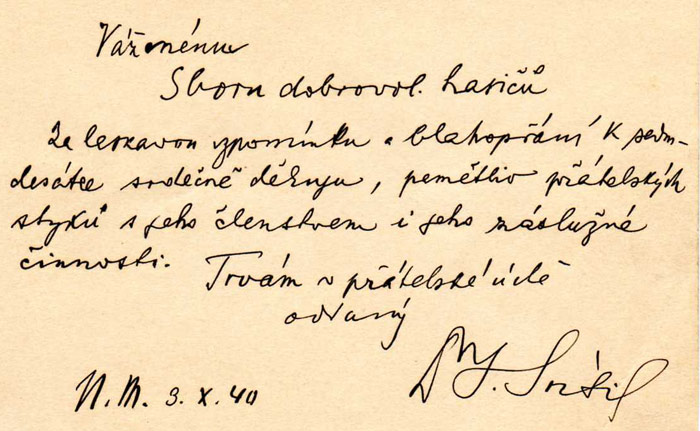 Váženému
Sboru dobrovol. hasičů
Za leskavou vzpomínku a blahopřání k sedm-
desátce srdečně děkuju, pamětliv přátelských
styků s jeho členstvem i jeho záslužné
činnosti.
Trvám v přátelské úctě
oddaný
N. M. 3. X. 40